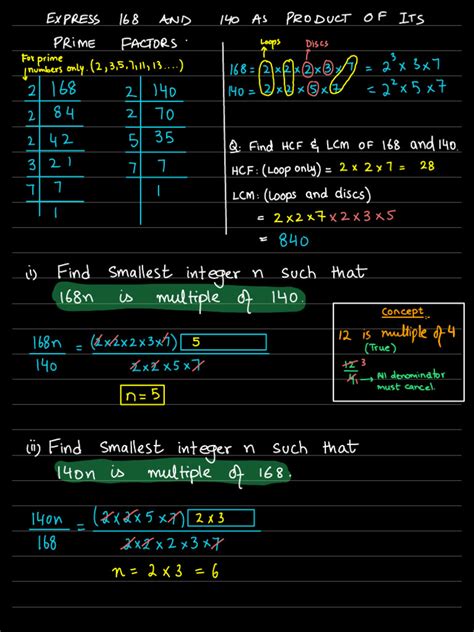 EXPRESS 168 AND 140 AS PRODUCT OF ITS
PRIME FACTORS.
For prime
numbers only. (2,3,5,7,11,13....)
2 | 168
2 | 84
2 | 42
3 | 21
7 | 7
1
2 | 140
2 | 70
5 | 35
7 | 7
1
Loops Discs
168 = 2 × 2 × 2 × 3 × 7 = 2³ × 3 × 7
140 = 2 × 2 × 5 × 7 = 2² × 5 × 7
Q: Find HCF & LCM OF 168 and 140.
HCF: (Loop only) = 2 × 2 × 7 = 28
LCM: (Loops and discs)
= 2×2×7×2×3×5
= 840
(i) Find smallest integer n such that
168n is multiple of 140.
168n/140 = (2×2×2×3×7) 5 / 2×2×5×7
n=5
Concept
12 is multiple of 4
(True)
12 3
4 1 → All denominator
must cancel.
(ii) Find smallest integer n such that
140n is multiple of 168.
140n/168 = (2×2×5×7) 2×3 / 2×2×2×3×7
n = 2×3 = 6